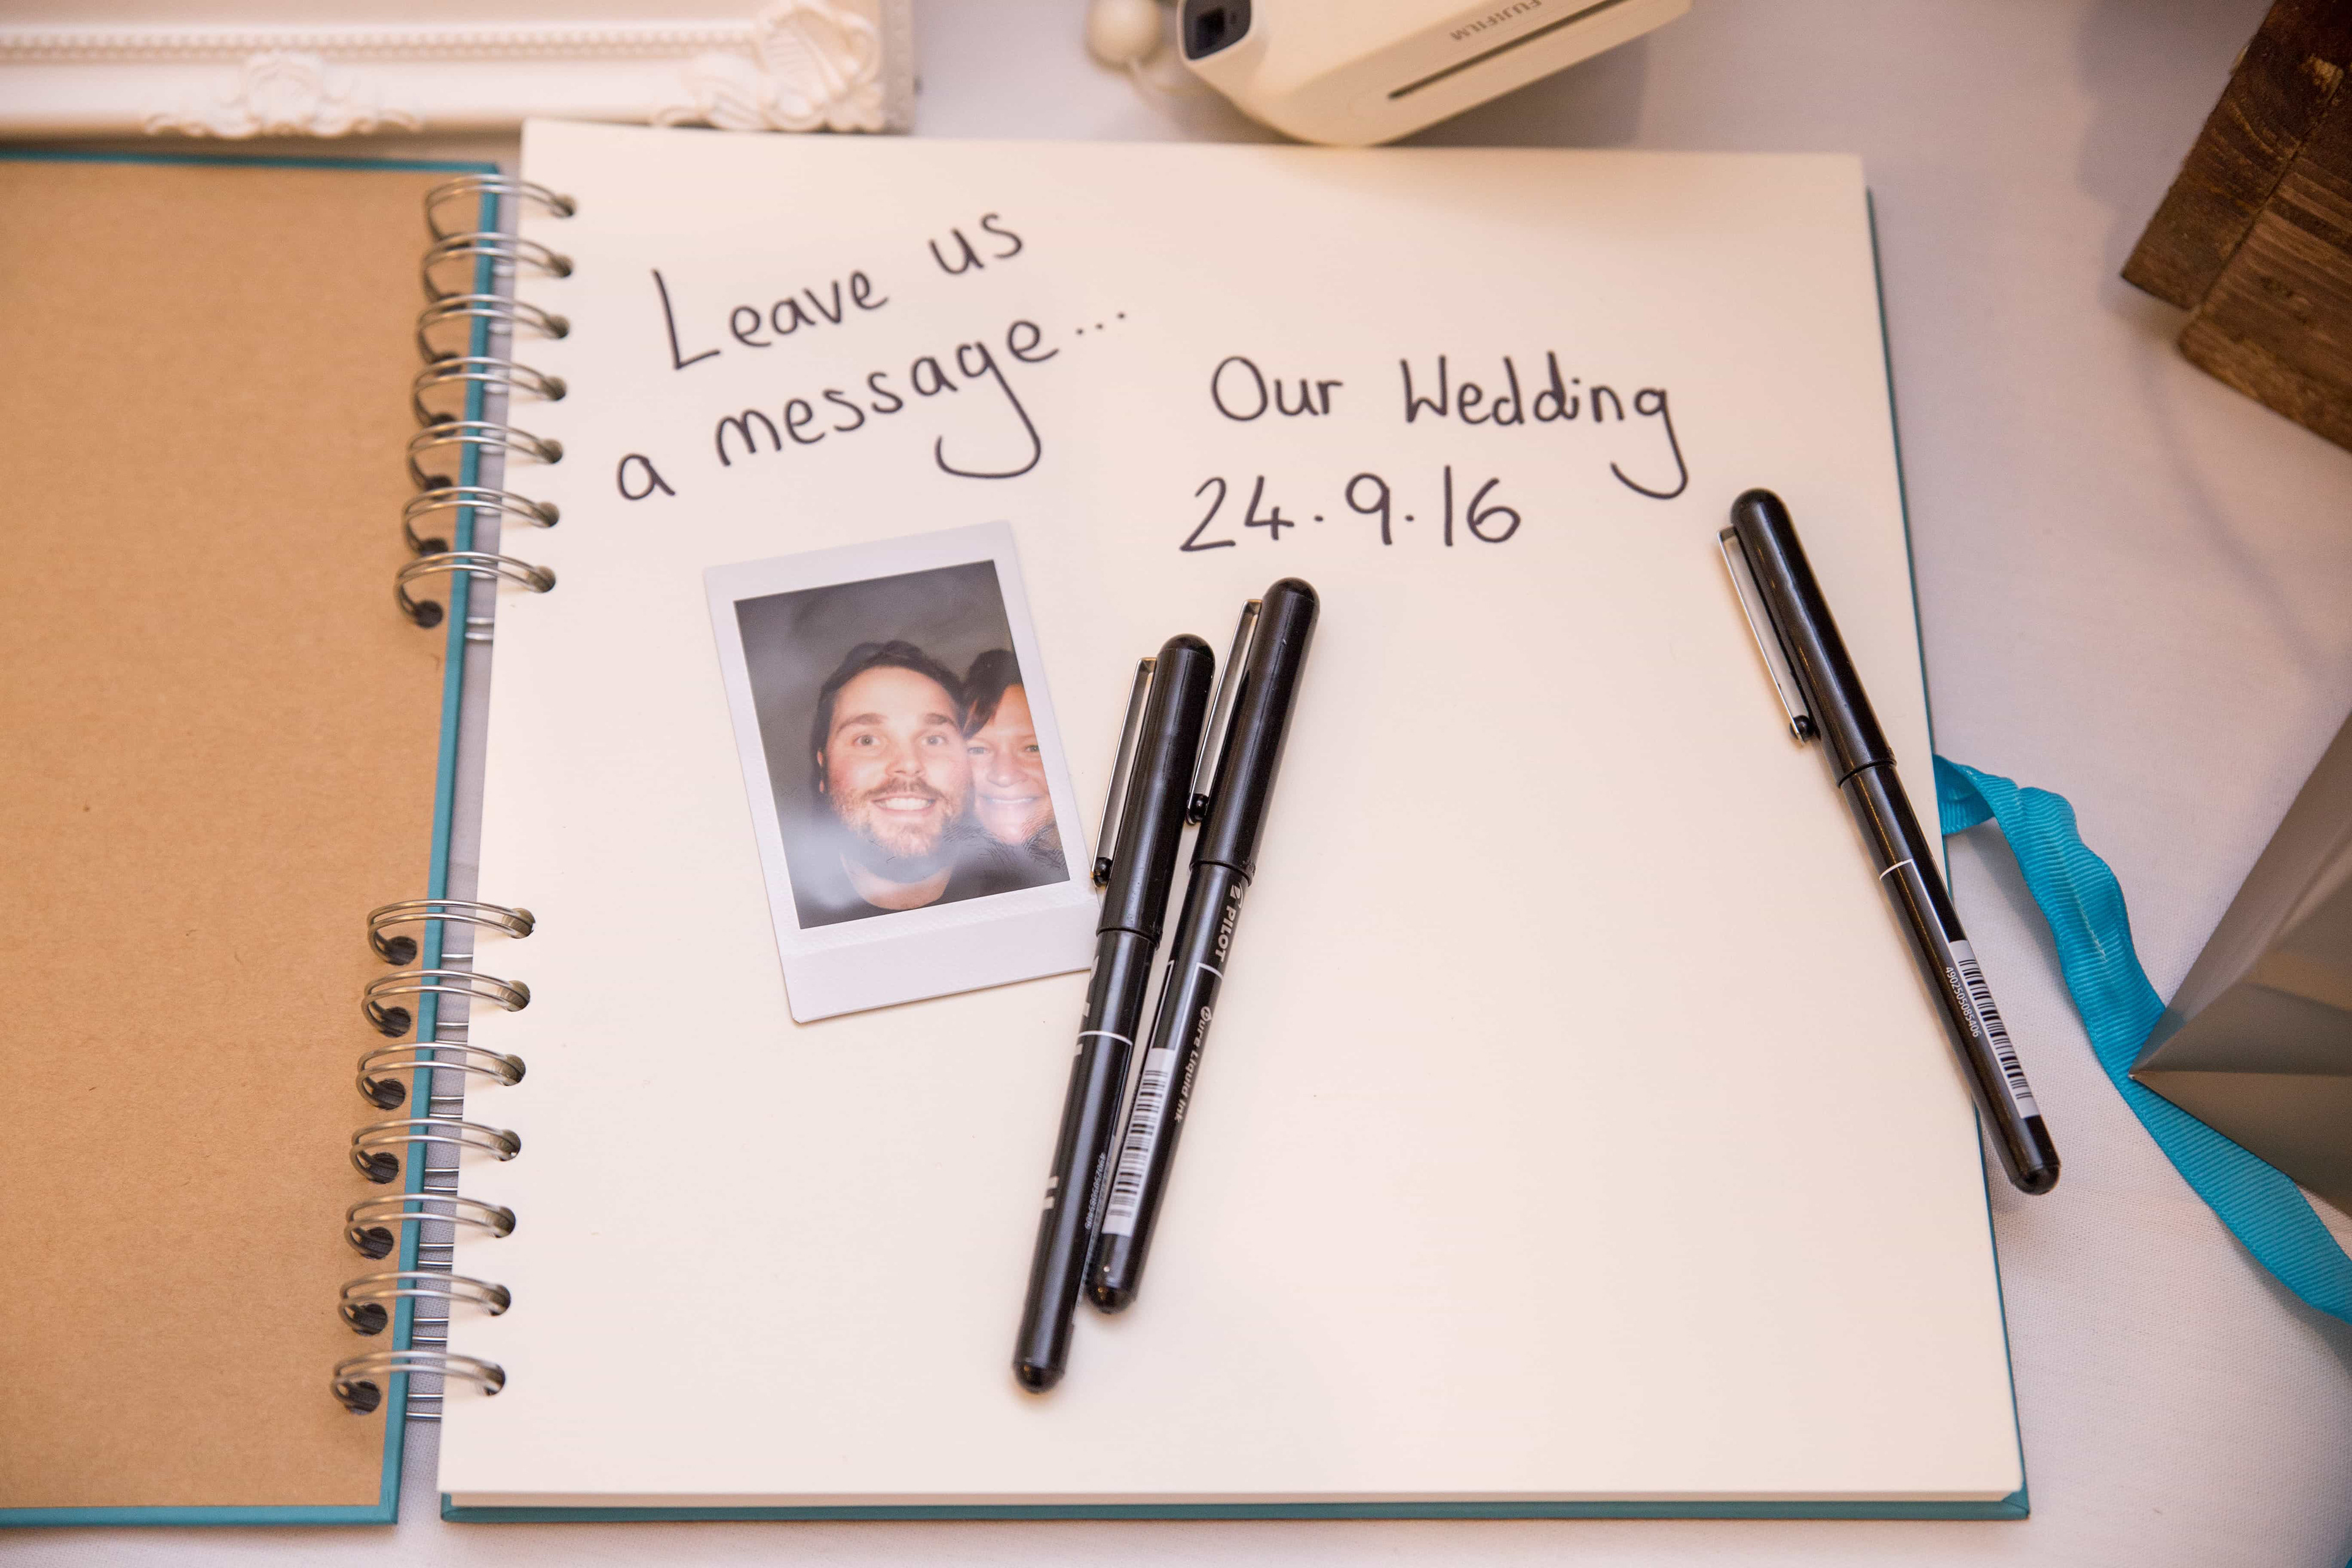 FUJIFILM
Leave us
a message...
Our Wedding
24.9.16
PILOT
Pure Liquid Ink
4902505085406